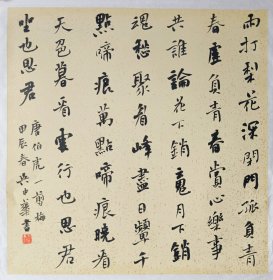 雨打梨花深閉門孤負青
春虛負青春賞心樂事
共誰論花下銷魂月下銷
魂愁聚眉峰盡日顰千
點啼痕萬點啼痕曉看
天色暮看雲行也思君
坐也思君
唐伯虎一剪梅
甲辰春